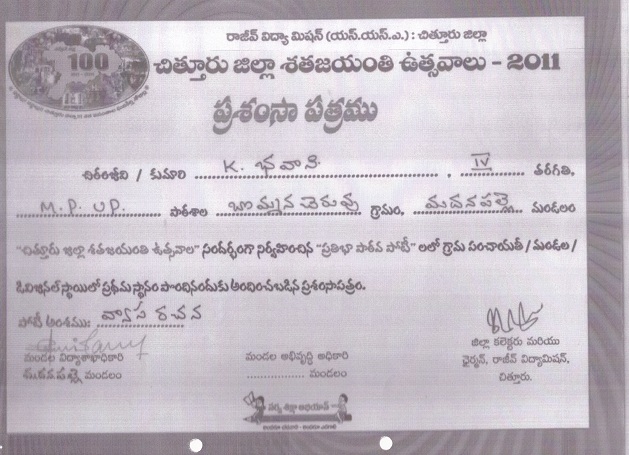 రాజీవ్ విద్యా మిషన్ (యస్.యస్.ఎ.) : చిత్తూరు జిల్లా
100
చిత్తూరు జిల్లా శతజయంతి ఉత్సవాలు - 2011
ప్రశంసా పత్రము
చిరంజీవి / కుమారి K. భవాని , IV తరగతి,
M.P. UP. పాఠశాల బొమ్మన చెరువు గ్రామం, మదనపల్లె మండలం
"చిత్తూరు జిల్లా శతజయంతి ఉత్సవాల" సందర్భంగా నిర్వహించిన "ప్రతిభా పాఠవ పోటీ" లలో గ్రామ పంచాయతీ / మండల /
డివిజనల్ స్థాయిలో ప్రథమస్థానం పొందినందుకు అందించబడిన ప్రశంసాపత్రం.
పోటీ అంశము: వ్యాస రచన
మండల విద్యాశాఖాధికారి
మదనపల్లె మండలం
మండల అభివృద్ధి అధికారి
................ మండలం
జిల్లా కలెక్టరు మరియు
ఛైర్మన్, రాజీవ్ విద్యామిషన్,
చిత్తూరు.
సర్వ శిక్షా అభియాన్